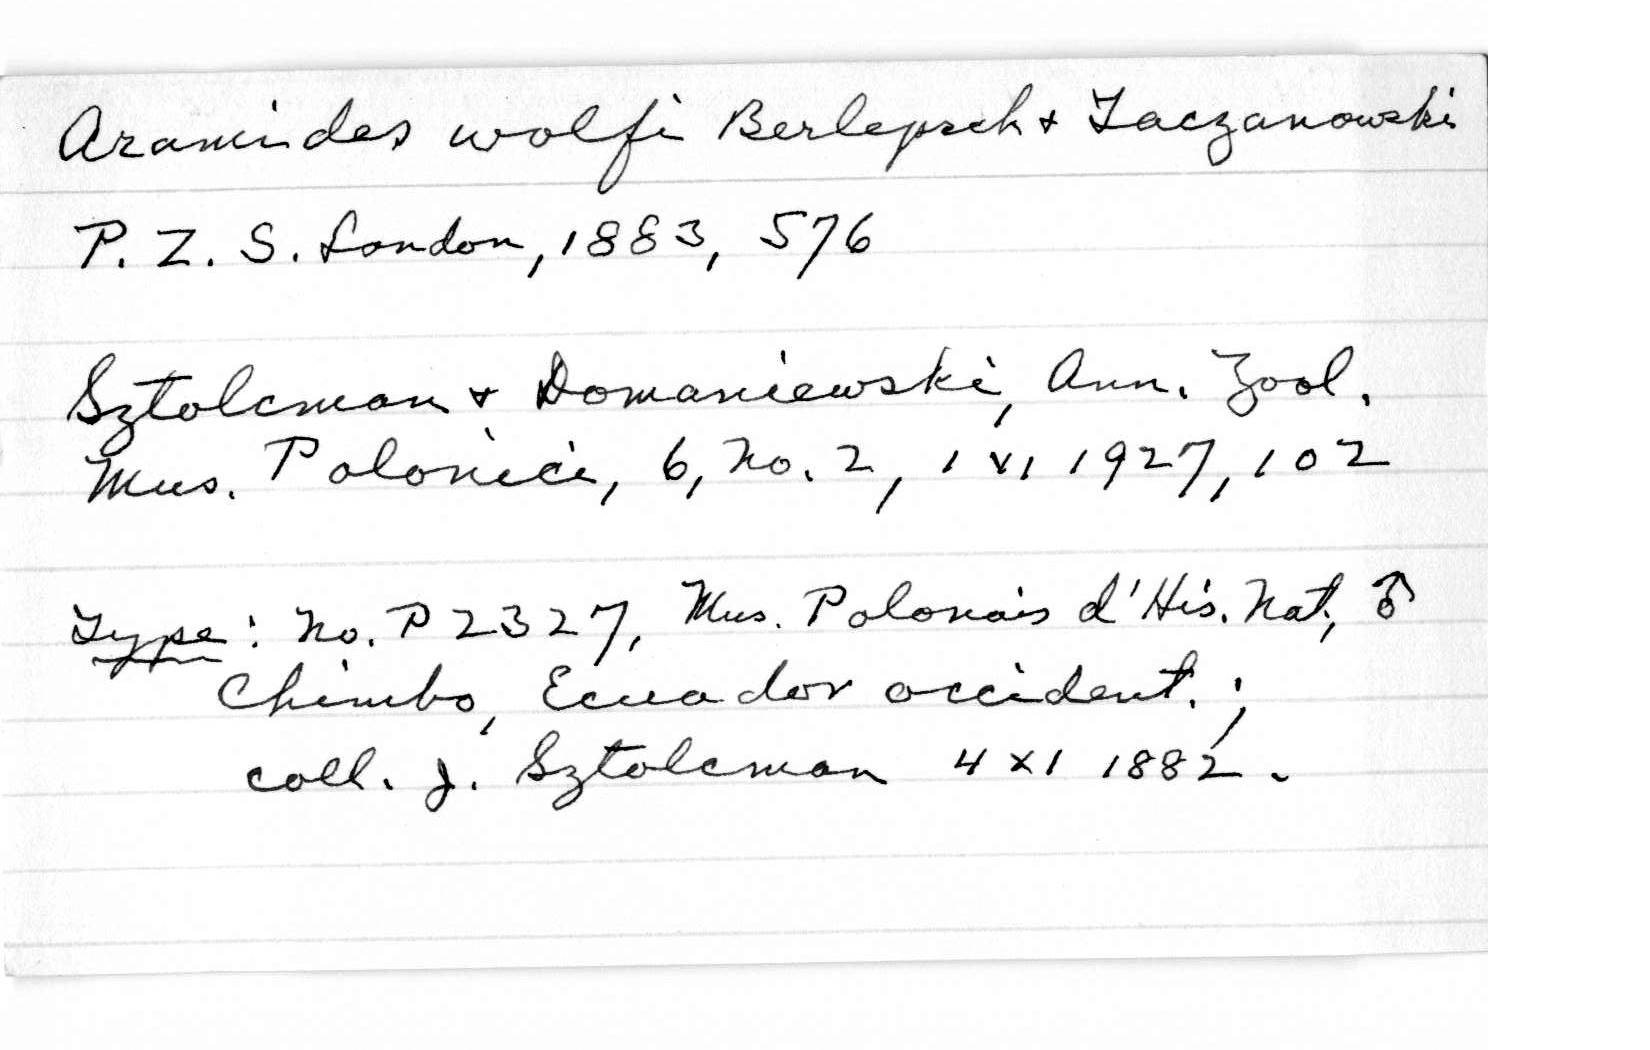 Aramides wolfi Berlepsch + Taczanowski
P. Z. S. London, 1883, 576
Sztolcman + Domaniewski, Ann. Zool.
Mus. Polonici, 6, No. 2, 1 VI 1927, 102
Type: No. P 2327, Mus. Polonais d'His. Nat., ♂
Chimbo, Ecuador occident.;
coll. J. Sztolcman 4 XI 1882.